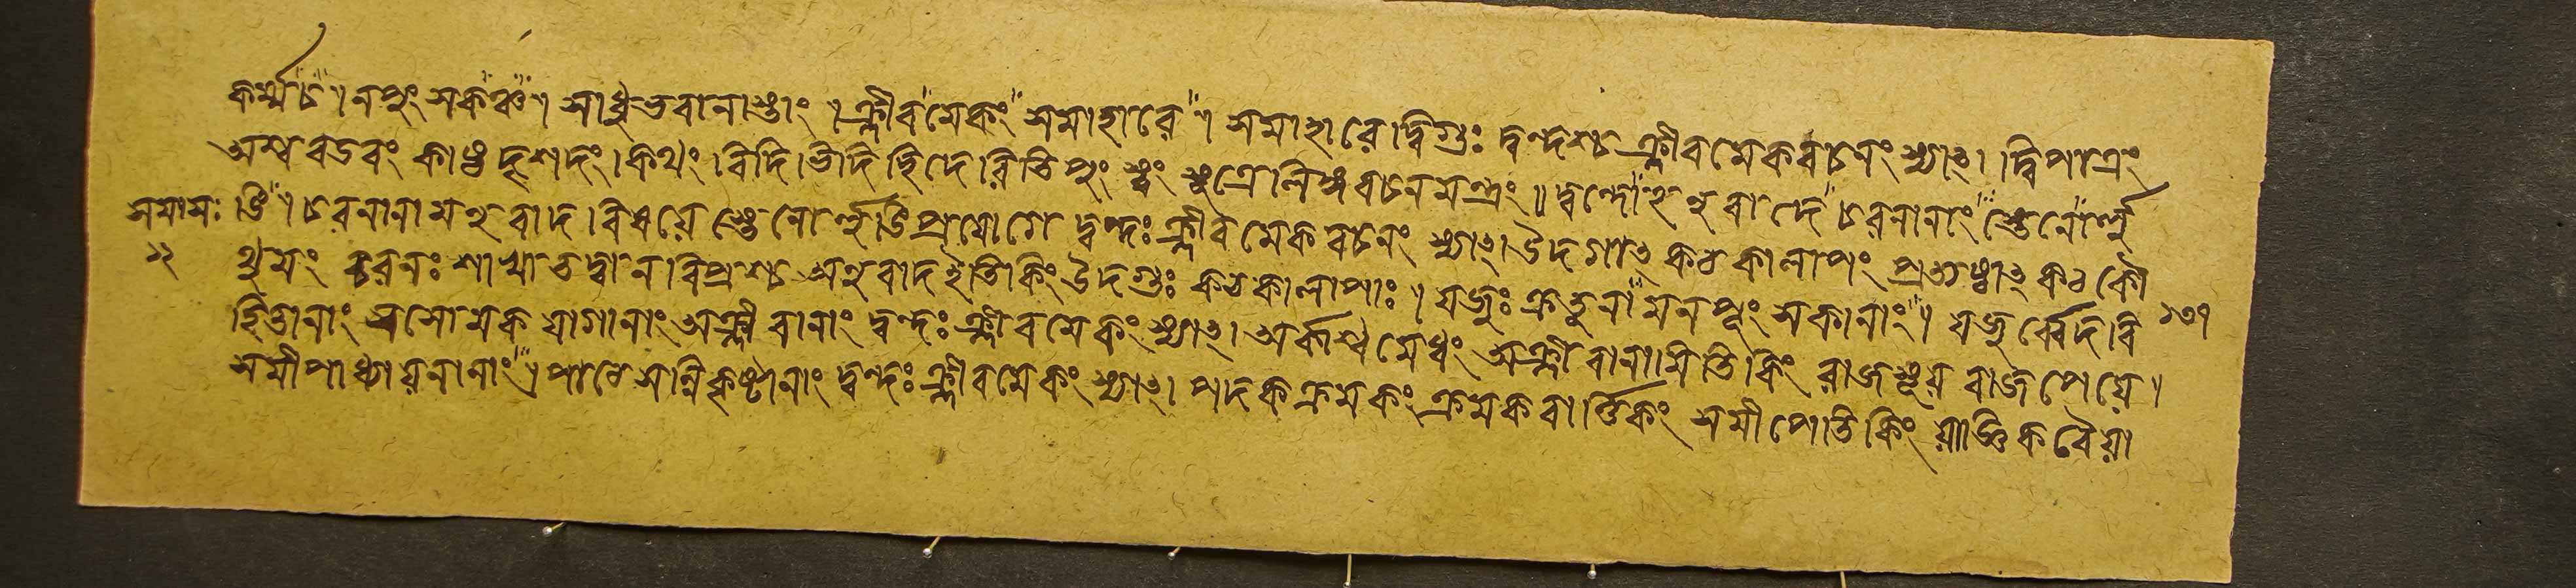 কর্ম্ম চ। নপুং সকঞ্চ। সাধুভবানাস্তাং। ক্লীবমেকং সমাহারে। সমাহারে দ্বিগুঃ দ্বন্দশ্চ ক্লীবমেকবচনং স্যাৎ। দ্বিপাত্রং
অশ্ববডবং কাষ্ঠদৃশদং। কথং। বিদি। ভিদি ছিদেরিতি পুং স্ত্বং সূত্রেলিঙ্গবচনমতন্ত্রং॥ দ্বন্দোঽনুবাদে চরনানাং স্তেনোর্লু
সমাসঃ ঙি। চরনানামনুবাদ। বিষয়ে স্তেনোর্লুঙি প্রযোগে দ্বন্দঃ ক্লীবমেকবচনং স্যাৎ। উদগাৎ কঠকালাপং প্রত্যষ্ঠাৎ কঠকৌ
১২ থুমং চরনঃ শাখাভদ্বান বিপ্রশ্চ অনুবাদ ইতি কিং উদগুঃ কঠকালাপাঃ। যজুঃ ক্রতুনামনপুং সকানাং। যজুর্ব্বেদ বি ১৩৭
হিতানাং সসোমক যাগানাং অক্লীবানাং দ্বন্দঃ ক্লীবমেকং স্যাৎ। অর্কাশ্বমেধং অক্লীবানামিতি কিং রাজসূয় বাজপেয়ে।
সমীপাধ্যায়নানাং। পাঠে সন্নিকৃষ্টানাং দ্বন্দঃ ক্লীবমেকং স্যাৎ। পদকক্রমকং ক্রমকবার্ত্তিকং সমীপেতি কিং যাজ্ঞিকবৈয়া